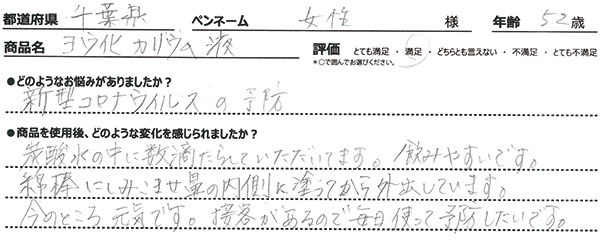 都道府県 千葉県 ペンネーム 女性 様 年齢 52歳
商品名 ヨウ化カリウム液 評価 とても満足・満足・どちらとも言えない・不満足・とても不満足
*○で囲んでお選びください。
●どのようなお悩みがありましたか？
新型コロナウイルスの予防
●商品を使用後、どのような変化を感じられましたか？
炭酸水の中に数滴たらしていただいてます。飲みやすいです。
綿棒にしみこませ鼻の内側に塗ってから外出しています。
今のところ元気です。接客があるので毎日使って予防したいです。